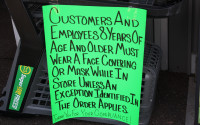 Customers And
Employees 8 Years Of
Age And Older Must
Wear A Face Covering
Or Mask While In
Store Unless An
Exception Identified In
The Order Applies.
Thank You For Your Compliance!